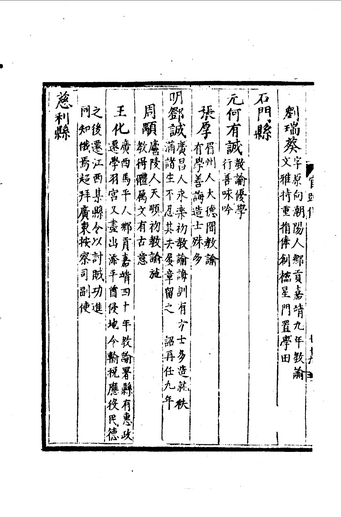 劉瑞葵 字原向潮陽人鄉貢嘉靖九年教諭
文雅持重捐俸創櫺星門置學田
石門縣
元何有誠 教諭優學
行善咏吟
張厚 眉州人大德間教諭
有學善誨造士殊多
明鄧誠 廣昌人永樂初教諭誨訓有方士多造就秩
滿諸生不忍其去憂章留之 詔再任九年
周顒 廬陵人天順初教諭施
教得體屬文有古意
王化 廣西馬平人鄉貢嘉靖四十年教諭署縣有惠政
遷學羽宮入盡出添平酋侵地令輸稅應役民德
之後遷江西某縣令以討賊功進
門知懺焉超拜廣東按察司副使
慈利縣